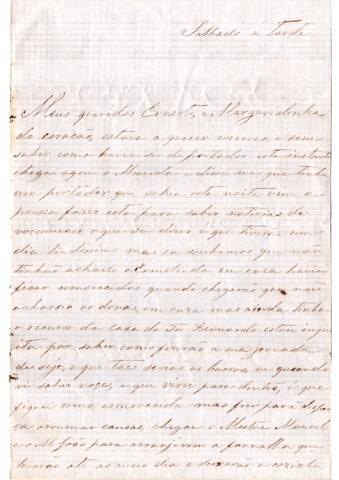 Sabbado a Tarde
Meus queridos Ernesto, e Margaridinha
do coração, estava a querer escrever e sem
saber como havia ser de portador este instante
chegou aqui o Almeida e disse me que tinha
um portador que sahia esta noite vim a
pressa fazer esta para saber noticias de
vocemeces o que vos direi é que tivérão um
dia lindissimo mas cá soubemos que não
tinhão achado a em casa havião
ficar esmorecidos quando chegarão que não
acharão os donos em casa mas ainda tinhão
o recurso da casa do Tio Bernardo estou inqui
eta por saber como fizerão a sua jornada
desejo, e que taes serião os burros, eu quando
vi sahir voçes, e que virei para dentro, é que
fiquei como esmorecida mas fui para Lisboa
a arrumar causas, chegou o Mestre Manoel
e o M João para arranjarem a fornalha que
tiverão até ao meio dia e deixarão a cozinha